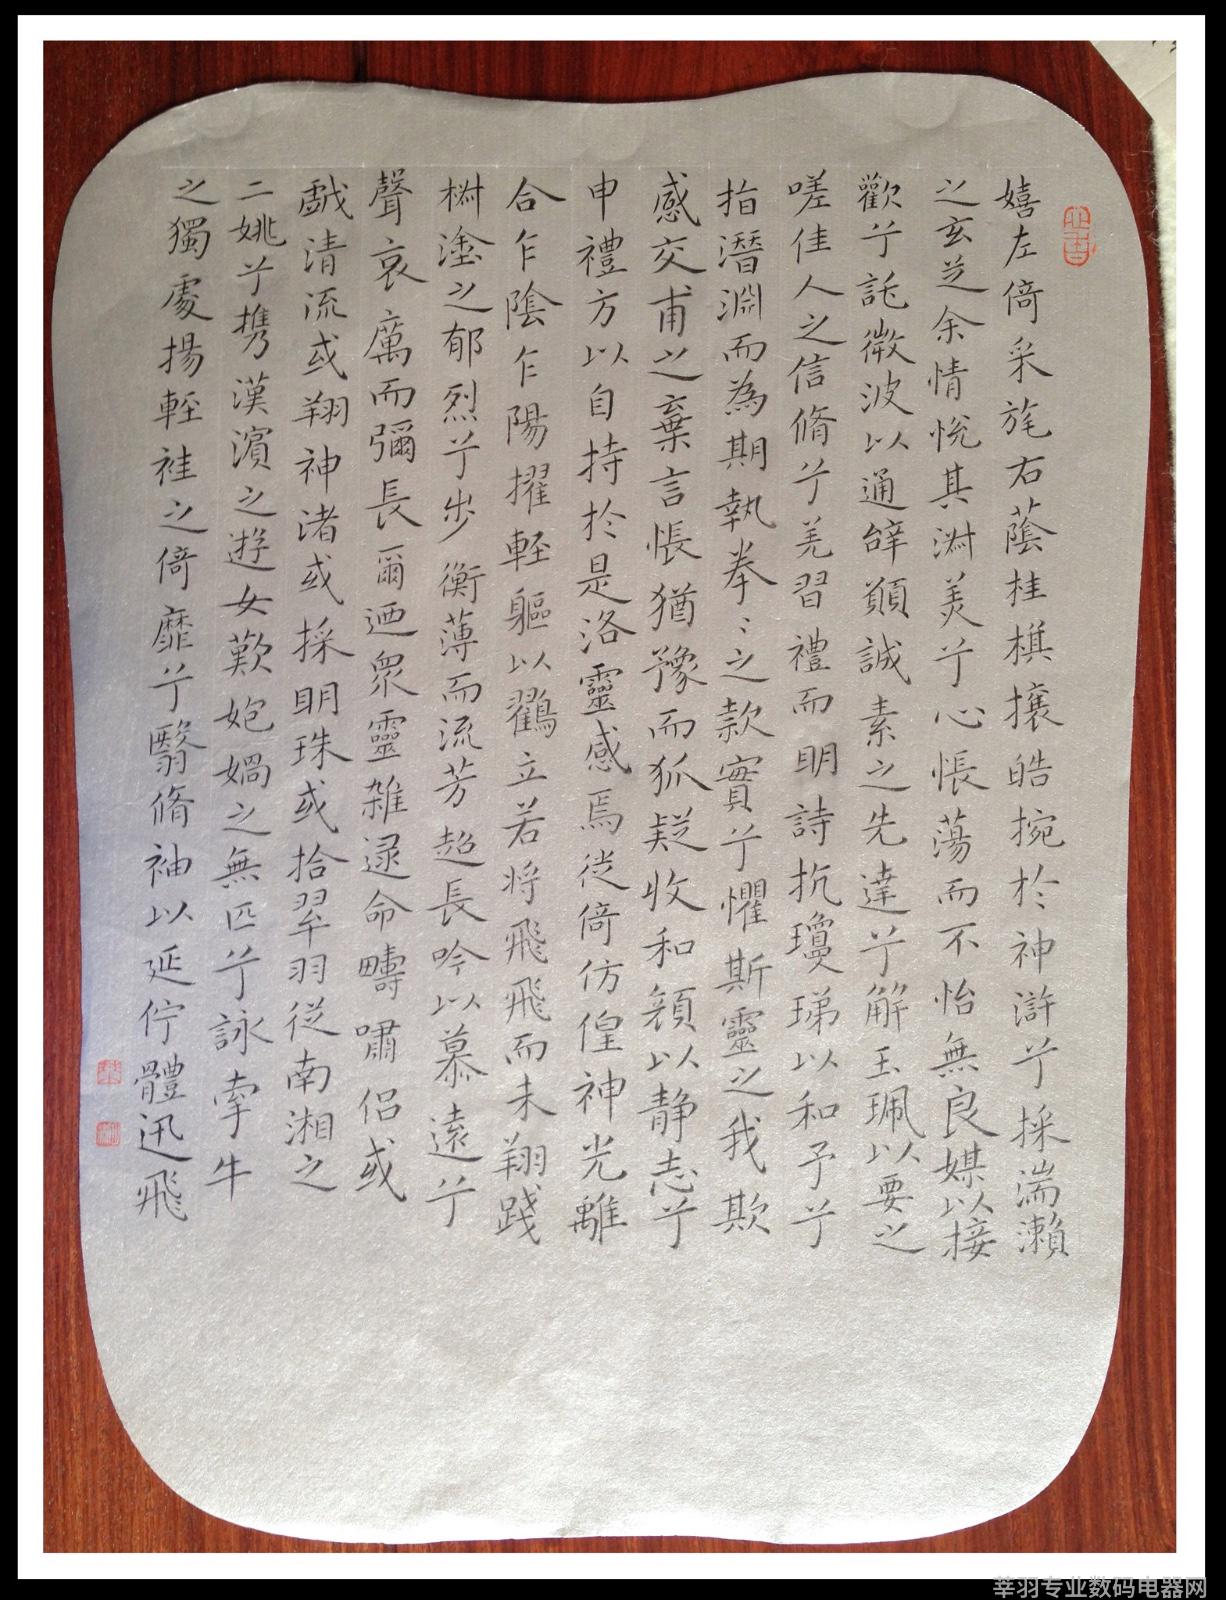 嬉左倚采旄右蔭桂棋攘皓捥於神滸兮採湍瀨
之玄芝余情悅其淑美兮心悵蕩而不怡無良媒以接
歡兮託微波以通辞願誠素之先達兮解玉珮以要之
嗟佳人之信脩兮羌習禮而明詩抗瓊珶以和予兮
指潛淵而為期執拳〻之款實兮懼斯靈之我欺
感交甫之棄言悵猶豫而狐疑收和顏以静志兮
申禮方以自持於是洛靈感焉徙倚仿偟神光離
合乍陰乍陽擢輕軀以鶴立若将飛飛而未翔踐
樹塗之郁烈兮步衡薄而流芳超長吟以慕遠兮
聲哀厲而彌長爾迺眾靈雜遝命疇嘯侣或
戲清流或翔神渚或採明珠或拾翠羽從南湘之
二姚兮携漢濱之遊女歎媌媧之無匹兮詠牽牛
之獨處揚輕袿之倚靡兮翳脩袖以延佇體迅飛
莘羽专业数码电器网